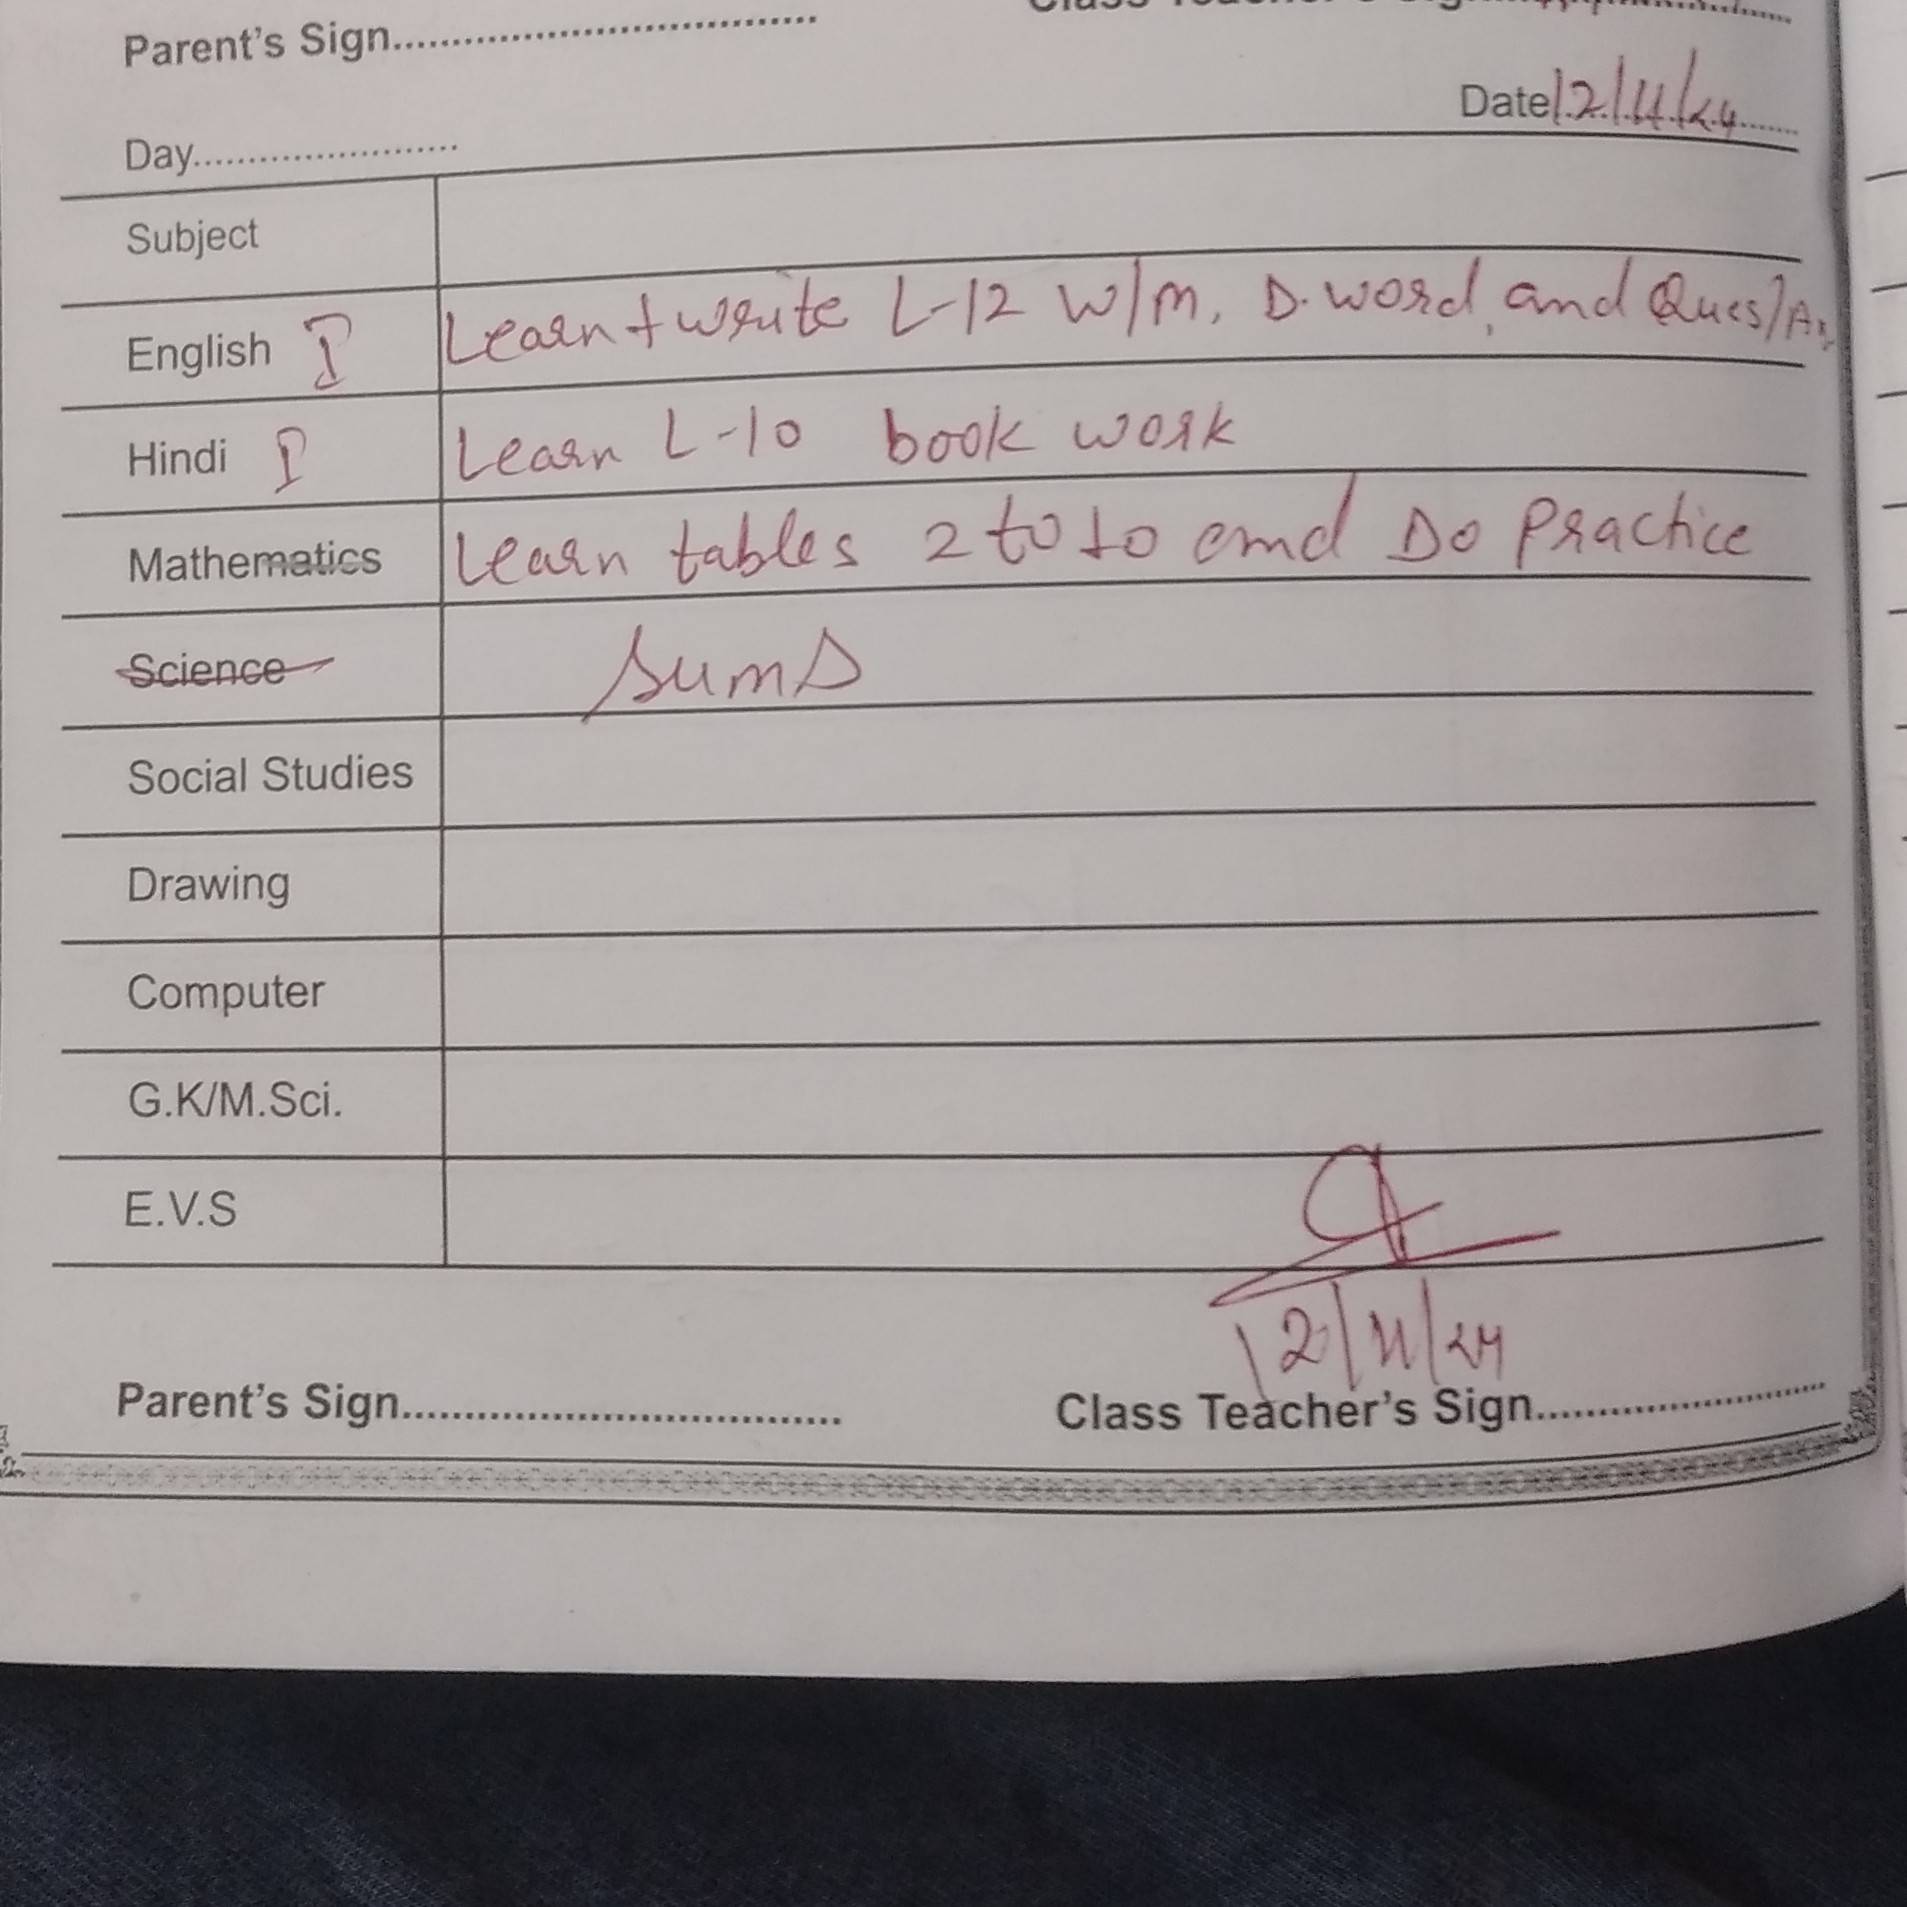 Parent's Sign.....................................
Day........................ Date 12/11/24
Subject
English I Learn + write L-12 W/M, D.word, and Ques/An
Hindi I Learn L-10 book work
Mathematics Learn tables 2 to 10 and Do Practice
Science sums
Social Studies
Drawing
Computer
G.K/M.Sci.
E.V.S
12/11/24
Parent's Sign.................................... Class Teacher's Sign........................